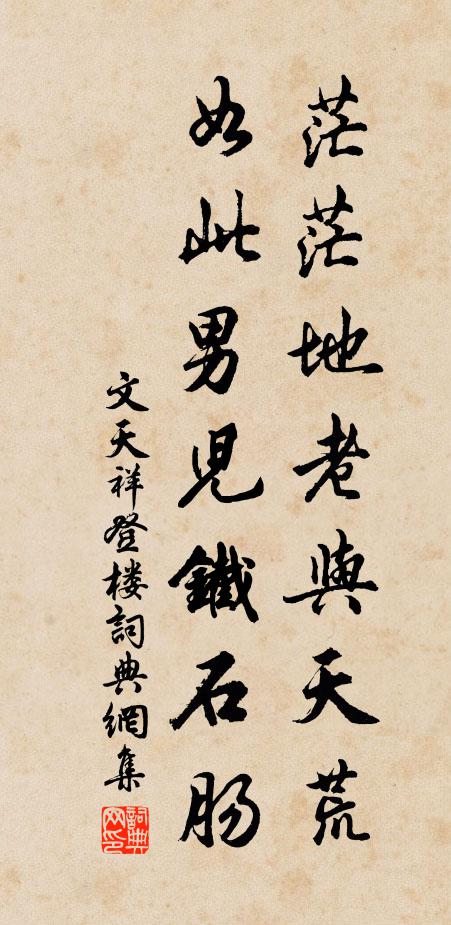 茫茫地老與天荒
如此男兒鐵石腸
文天祥登楼詞典網集
詞典网印